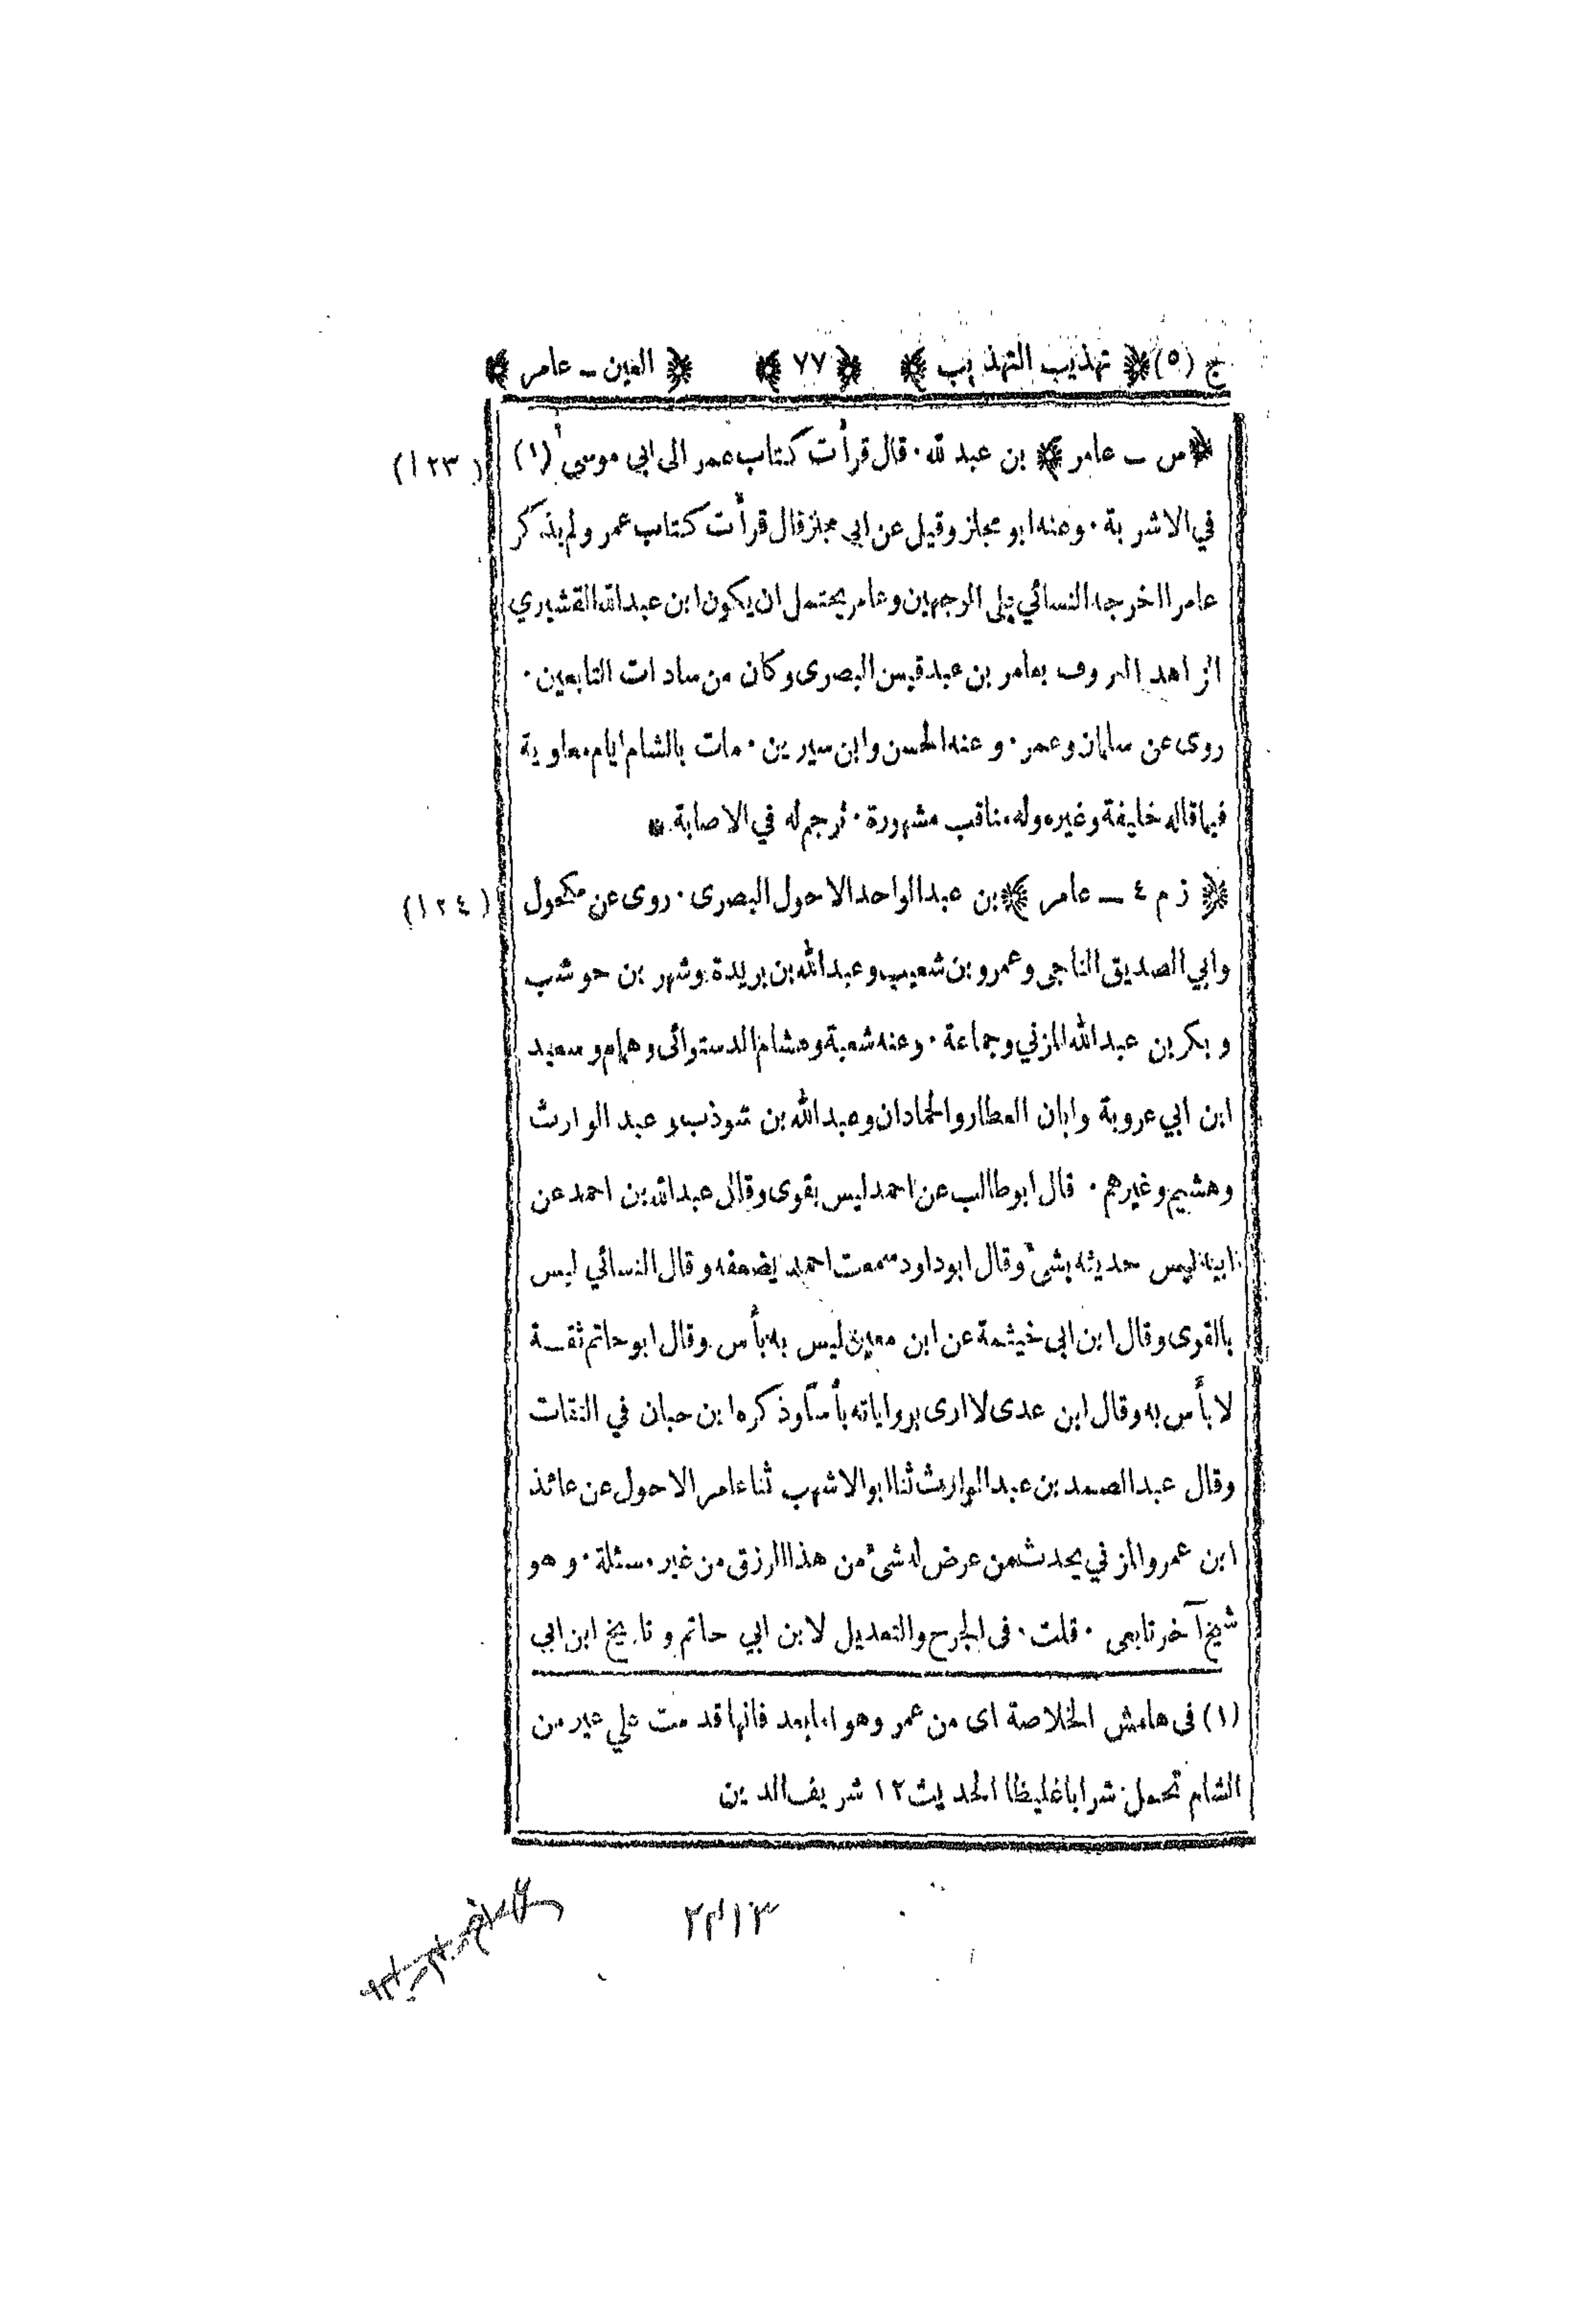 ج (٥) ﴿ تهذيب التهذيب ﴾ ﴿ ٧٧ ﴾ ﴿ العين ـ عامر ﴾
﴿ س ـ عامر ﴾ بن عبد لله ٠ قال قرأت كتاب عمر الى ابي موسى (١) (١٢٣)
في الاشربة ٠ وعنه ابو مجلز وقيل عن ابي مجلز قال قرأت كتاب عمر ولم يذكر
عامرا اخرجه النسائي على الوجهين وعامر يحتمل ان يكون ابن عبدالله القشيري
الزاهد المعروف بعامر بن عبد قيس البصرى وكان من سادات التابعين ٠
روى عن سلمان وعمر ٠ وعنه الحسن وابن سيرين ٠ مات بالشام ايام معاوية
فيما قاله خليفة وغيره وله مناقب مشهورة ٠ ترجم له في الاصابة *
﴿ ز م ٤ ـ عامر ﴾ بن عبدالواحد الاحول البصرى ٠ روى عن مكحول (١٢٤)
وابي الصديق الناجى وعمرو بن شعيب وعبدالله بن بريدة وشهر بن حوشب
وبكر بن عبدالله المزني وجماعة ٠ وعنه شعبة وهشام الدستوائى وهمام وسعيد
ابن ابي عروبة وابان العطار والحمادان وعبدالله بن شوذب وعبد الوارث
وهشيم وغيرهم ٠ قال ابوطالب عن احمد ليس بقوى وقال عبدالله بن احمد عن
ابيه ليس حديثه بشئ وقال ابوداود سمعت احمد يضعفه وقال النسائي ليس
بالقوى وقال ابن ابى خيثمة عن ابن معين ليس به بأس وقال ابوحاتم ثقة
لا بأس به وقال ابن عدى لا ارى برواياته بأسا وذكره ابن حبان في الثقات
وقال عبدالصمد بن عبدالوارث ثنا ابوالاشهب ثنا عامر الاحول عن عائذ
ابن عمرو المزني يحدث من عرض له شئ من هذا الرزق من غير مسئلة ٠ وهو
شيخ آخر تابعى ٠ قلت ٠ فى الجرح والتعديل لابن ابي حاتم وتاريخ ابن ابي
(١) فى هامش الخلاصة اى من عمر وهو اما بعد فانها قدمت علي عير من
الشام تحمل شرابا غليظا الحديث ١٢ شريف الدين